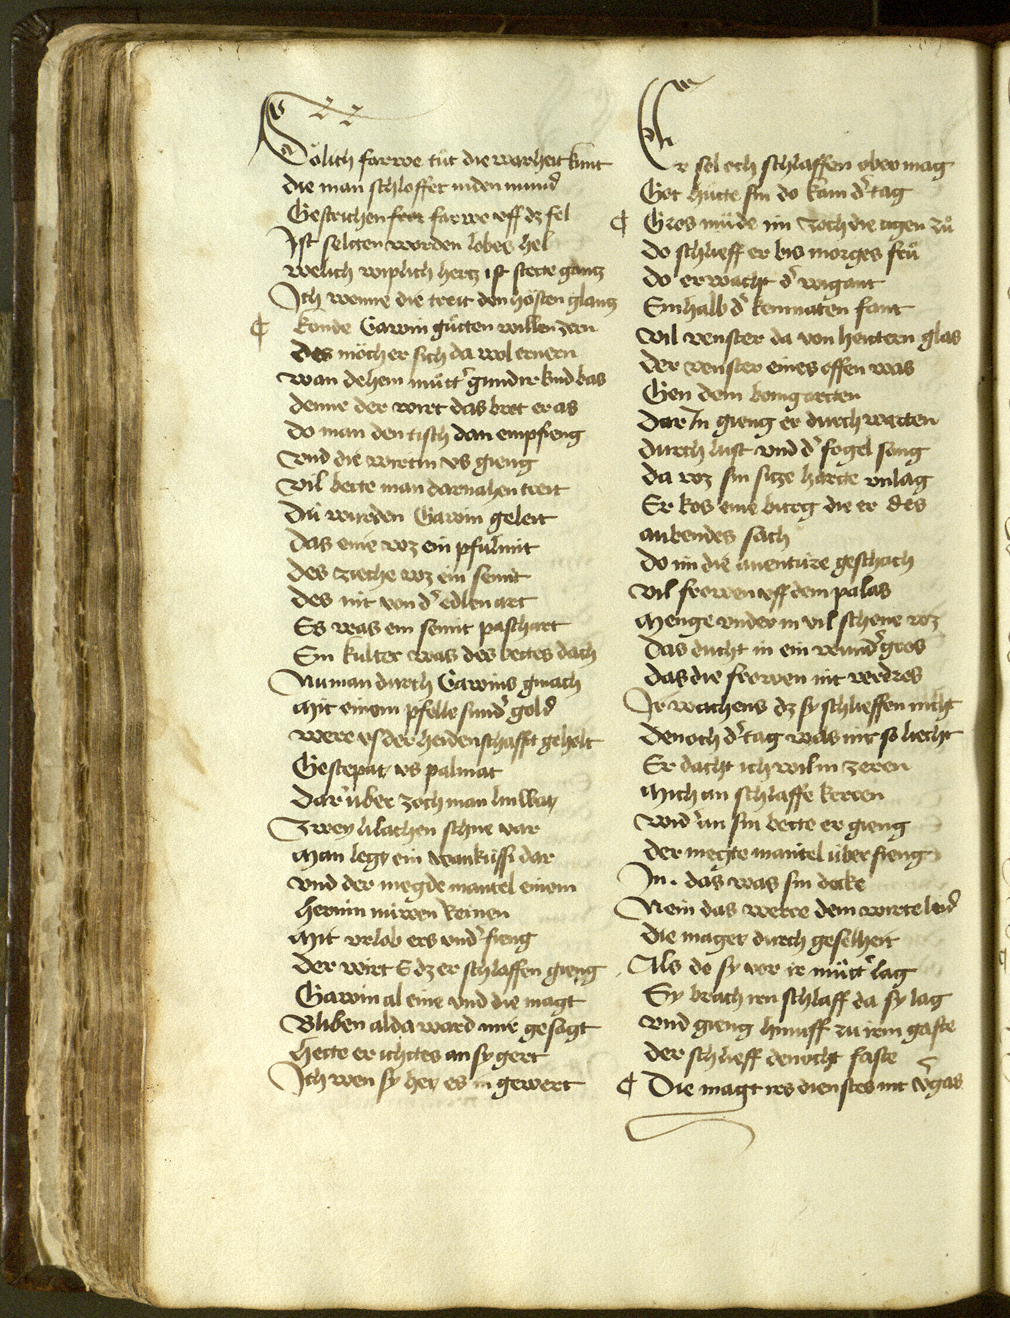 Sölich farwe tůt die warheit kunt
die man schloffet inden mund
Gestrichen frat farwe vff dz fel
Ist selten worden lobes hel
welich wiplich hertz ist stette gantz
Ich wenne die treit den hösten glantz
¶ Konde Gawin gůtten willen zern
des möcht er sich da wol ernern
wan dehein můtt' gund ir kind bas
denne der wirt das brot er as
do man den tisch dan empfieng
vnd die wirtin vs gieng
vil bette man darnahen treit
Dü wurden Gawin geleit
das eine wz ein pflumit
des zieche wz ein semit
des nit von d' edlen art
Es was ein semit paschart
Ein kulter was des bettes dach
Numan durch Gawins gmach
Mit einem pfelle sund' gold
were vs der heidenschafft geholt
Gestepat vs palmat
Dar über zoch man linwat
Zwey lilachen schne var
Man legt ein wanküssi dar
vnd der megde mantel einem
hermin nüwen keinen
Mit vrlob ers vnd' fieng
Der wirt E dz er schlaffen gieng
Gawin al eine vnd die magt
Bliben alda ward mir gesagt
hette er ichttes an sy gert
Ich wen sy het es in gewert
Er sol och schlaffen ober mag
Got hůtte sin do kam d' tag
¶ Gros můde im zoch die ogen zů
do schlieff er bis morges frů
do erwacht d' wigant
Einhalb d' kemnaten fant
vil venster da von heittern glas
der venster eines offen was
Gen dem bomgartten
Dar In gieng er durch wartten
durch lust vnd d' fogel sang
da wz sin sitze hartte vnlag
Er kos eine burg die er des
aubendes sach
do im die auentüre geschach
vil frowen vff dem palas
Menge vnder in vil schone wz
Das ducht in ein wund' gros
das die frowen nit verdros
Ir wachens dz sy schlieffen nicht
denoch d' tag was nit so liecht
Er dacht ich wil in zeren
Mich an schlaffe keren
wid' an sin bette er gieng
der megte mantel über fieng
In. das was sin decke
Nein das werre dem wirte leid
die maget durch geselheit
Als do sy vor ir můtt' lag
Sy brach iren schlaff da sy lag
vnd gieng hinuff zu irm gaste
der schlieff denocht faste
¶ Die magt irs dienstes nit v'gas